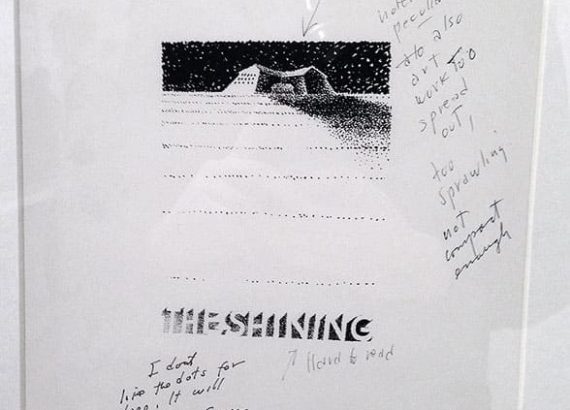 peculiar
also
art
work too
spread
out,
too
sprawling
not
compact
enough
THE SHINING
Hard to read
I dont
like the dots for
It will